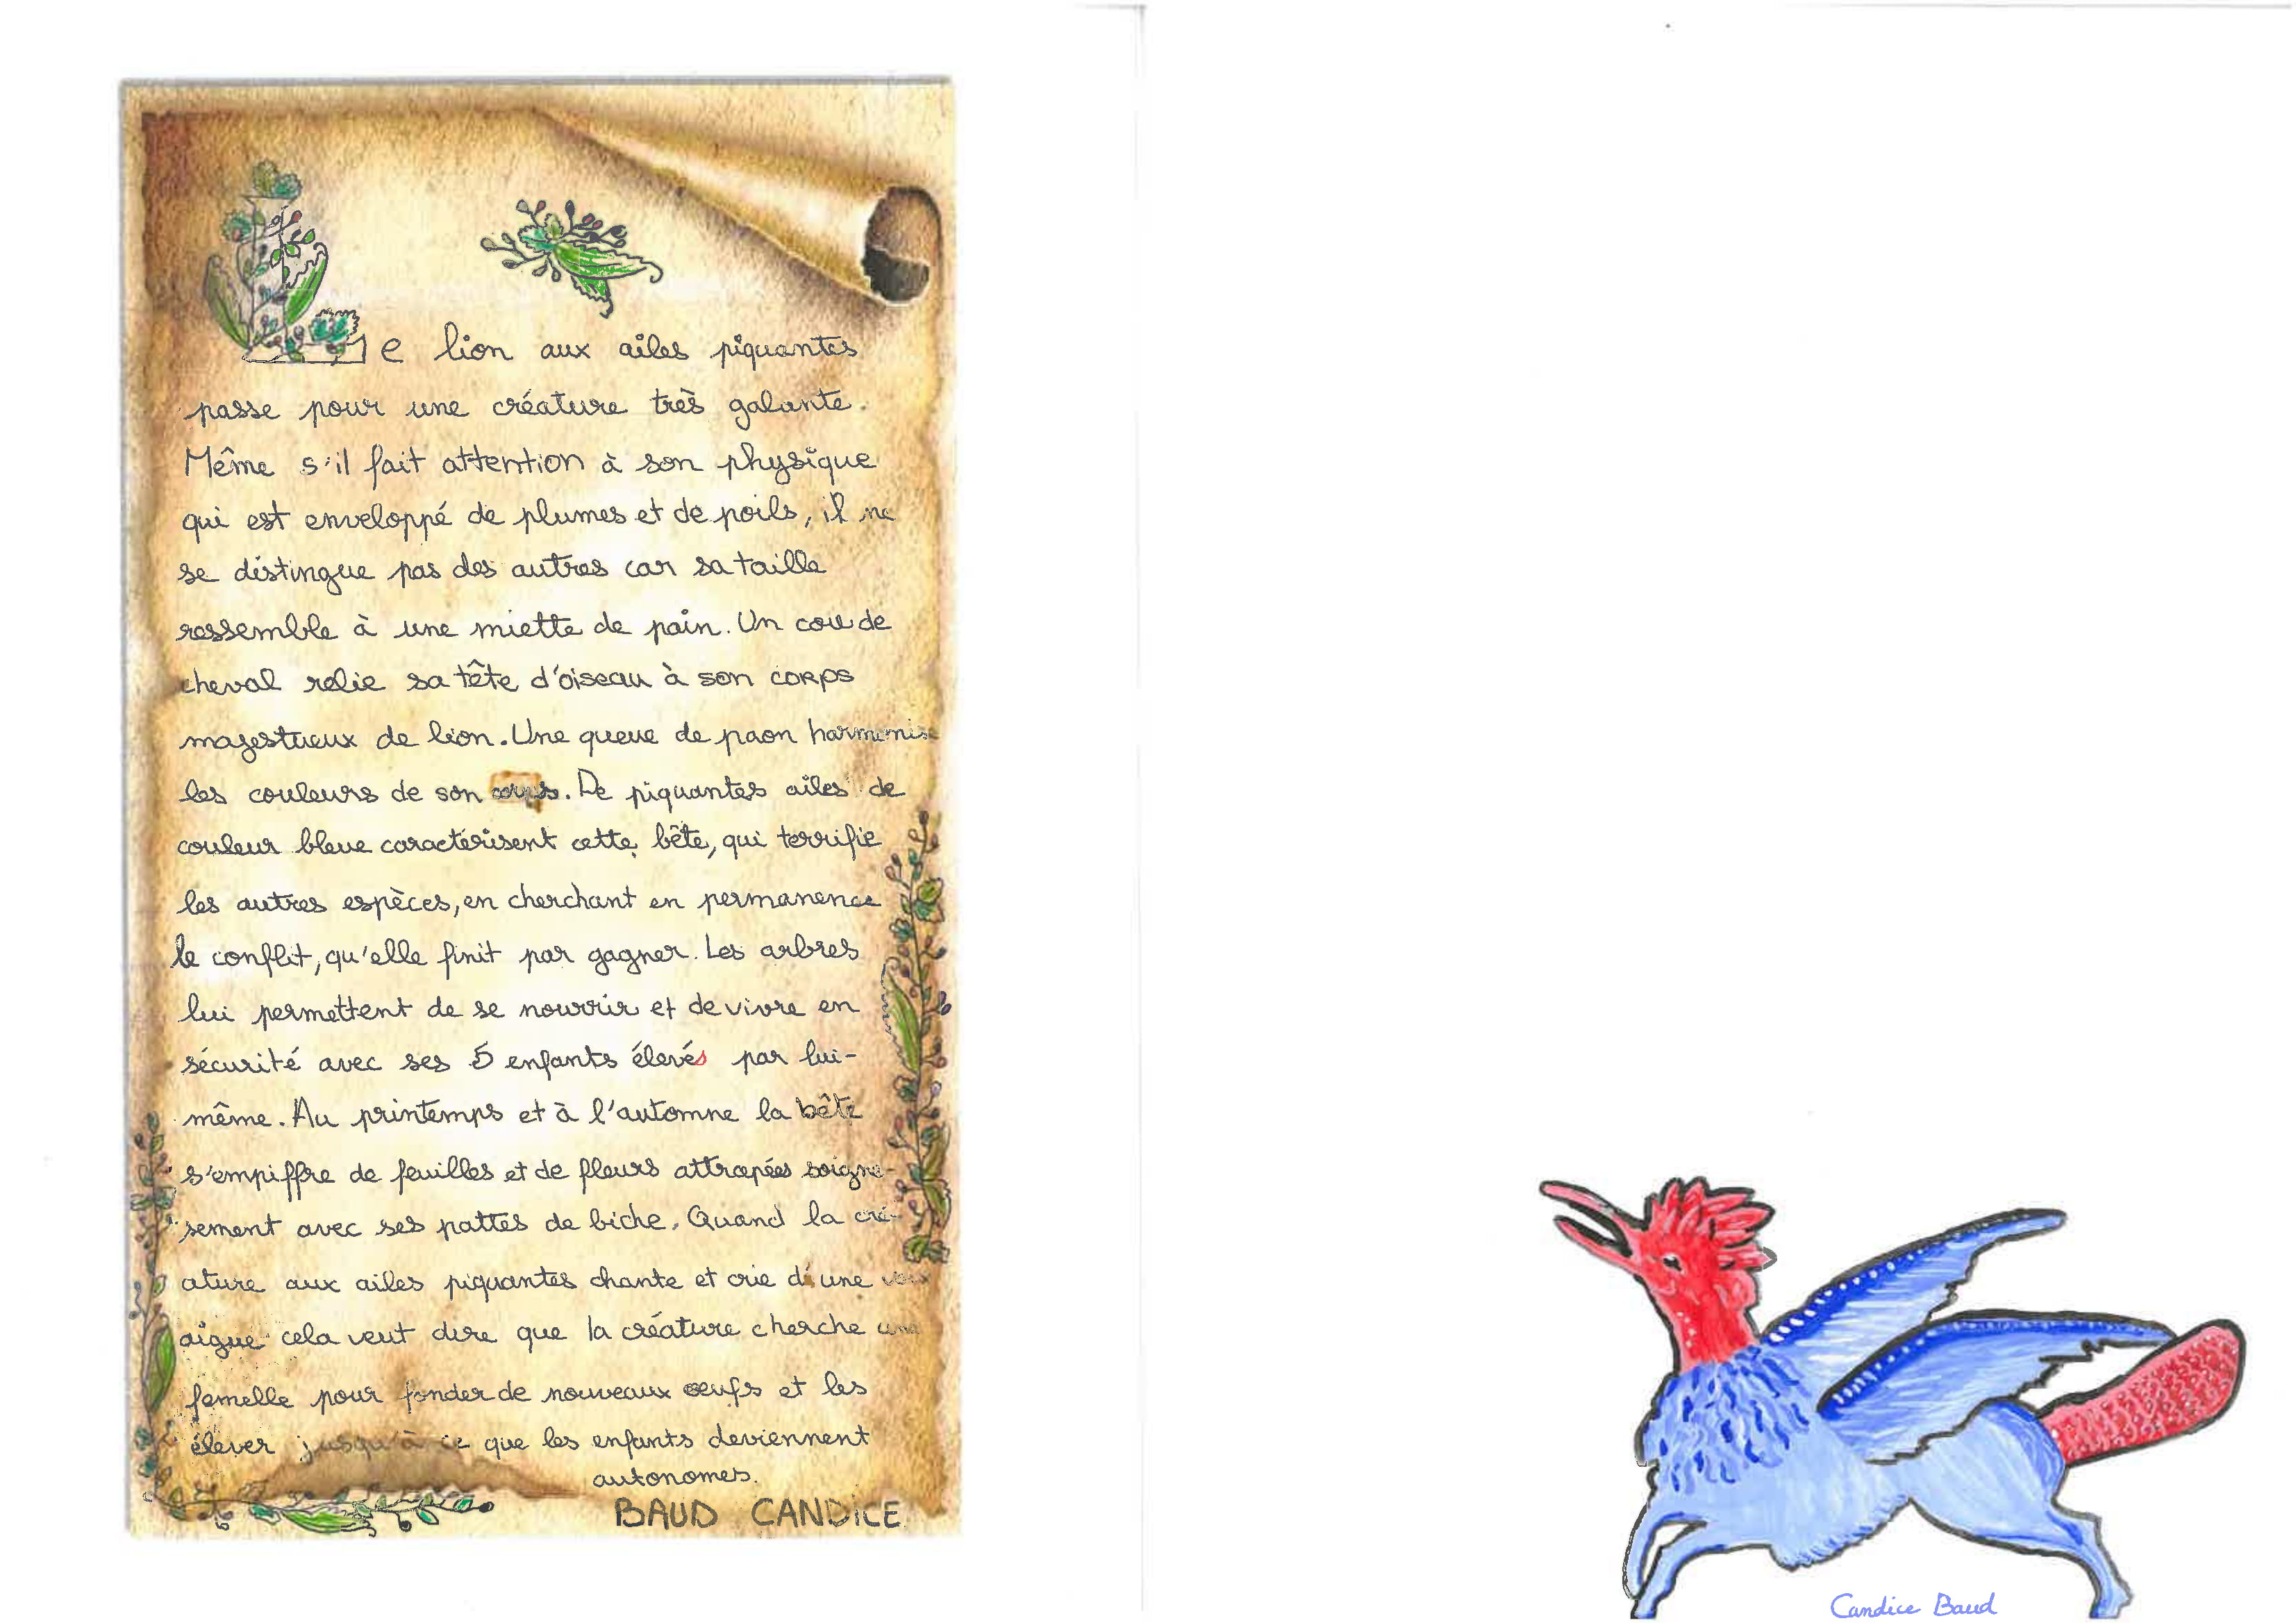 Le lion aux ailes piquantes
passe pour une créature très galante.
Même s'il fait attention à son physique
qui est enveloppé de plumes et de poils, il ne
se distingue pas des autres car sa taille
ressemble à une miette de pain. Un cou de
cheval relie sa tête d'oiseau à son corps
majestueux de lion. Une queue de paon harmonise
les couleurs de son corps. De piquantes ailes de
couleur bleue caractérisent cette bête, qui terrifie
les autres espèces, en cherchant en permanence
le conflit, qu'elle finit par gagner. Les arbres
lui permettent de se nourrir et de vivre en
sécurité avec ses 5 enfants élevés par lui-
même. Au printemps et à l'automne la bête
s'empiffre de feuilles et de fleurs attrapées soigneu-
sement avec ses pattes de biche. Quand la cré-
ature aux ailes piquantes chante et crie d'une voix
aigue cela veut dire que la créature cherche une
femelle pour fonder de nouveaux œufs et les
élever jusqu'à ce que les enfants deviennent
autonomes.
BAUD CANDICE
Candice Baud